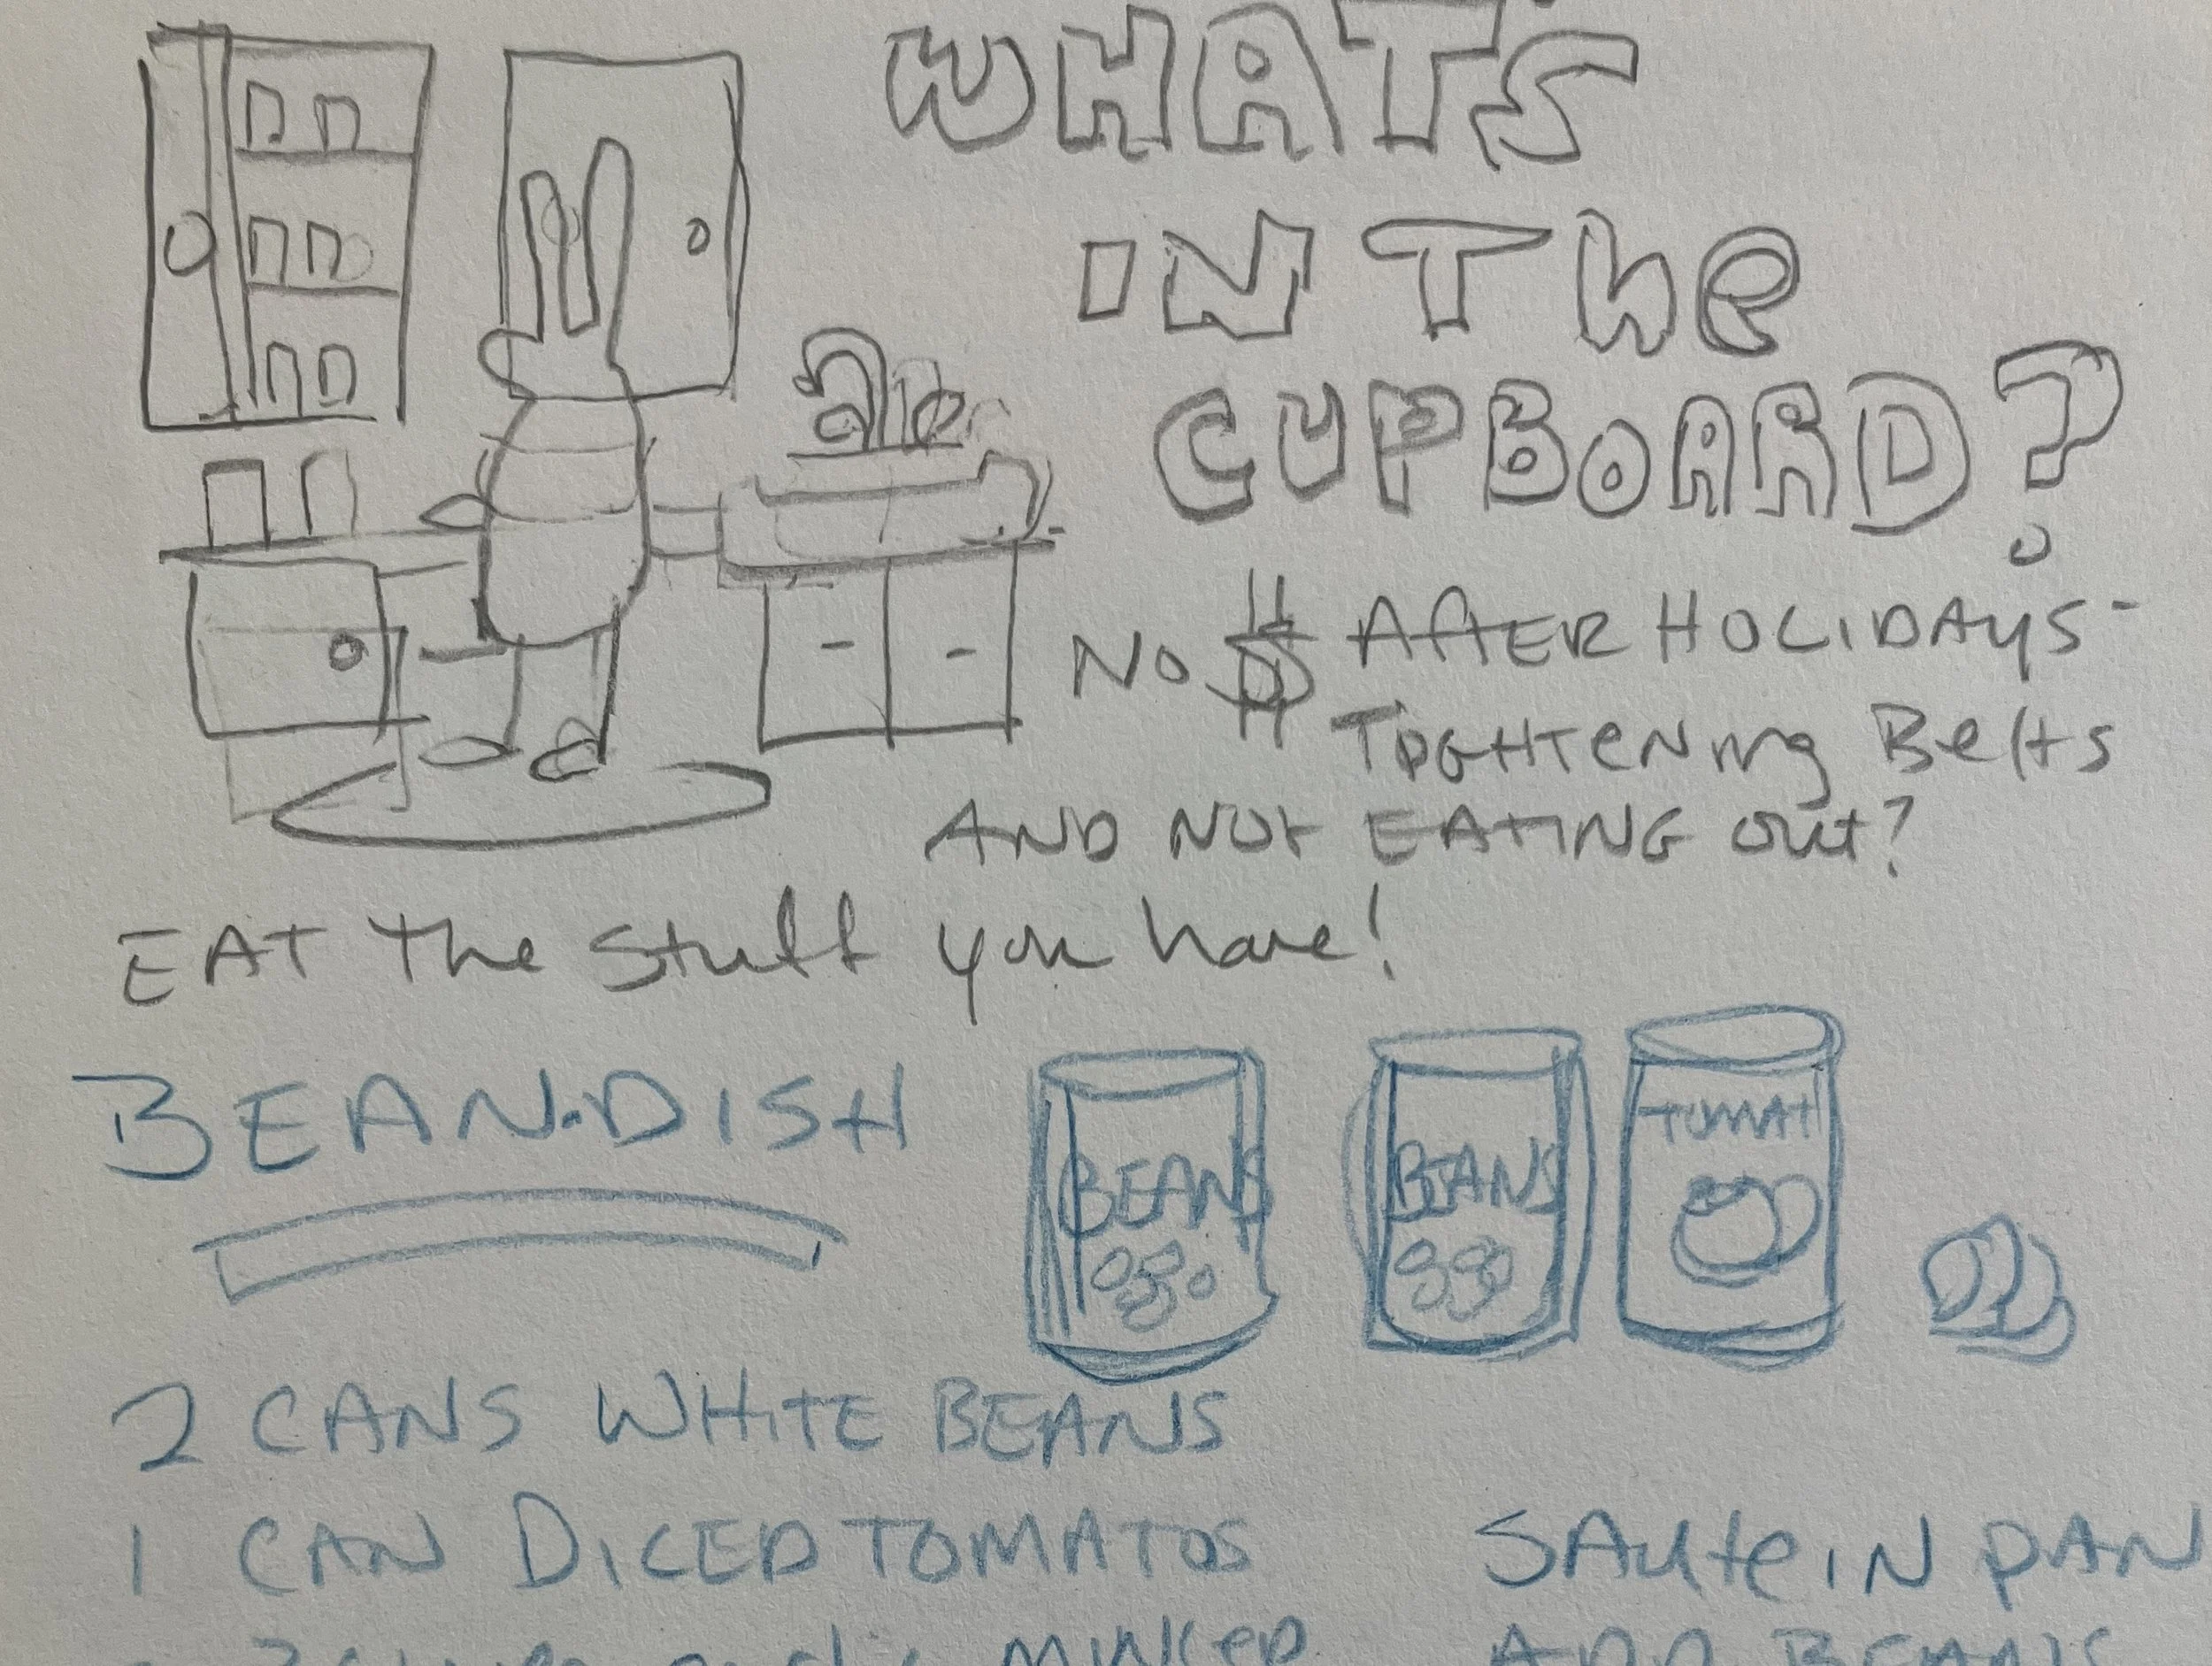 WHAT'S
IN The
CUPBOARD?
No $ AFTER HOLIDAYS-
TIGHTENing Belts
AND NOT EATING out?
EAT The Stuff you have!
BEAN-DISH
BEANS
BEANS
TOMAT
2 CANS WHITE BEANS
1 CAN DICED TOMATOS
SAUteIN PAN
MINCED
ADD BEANS